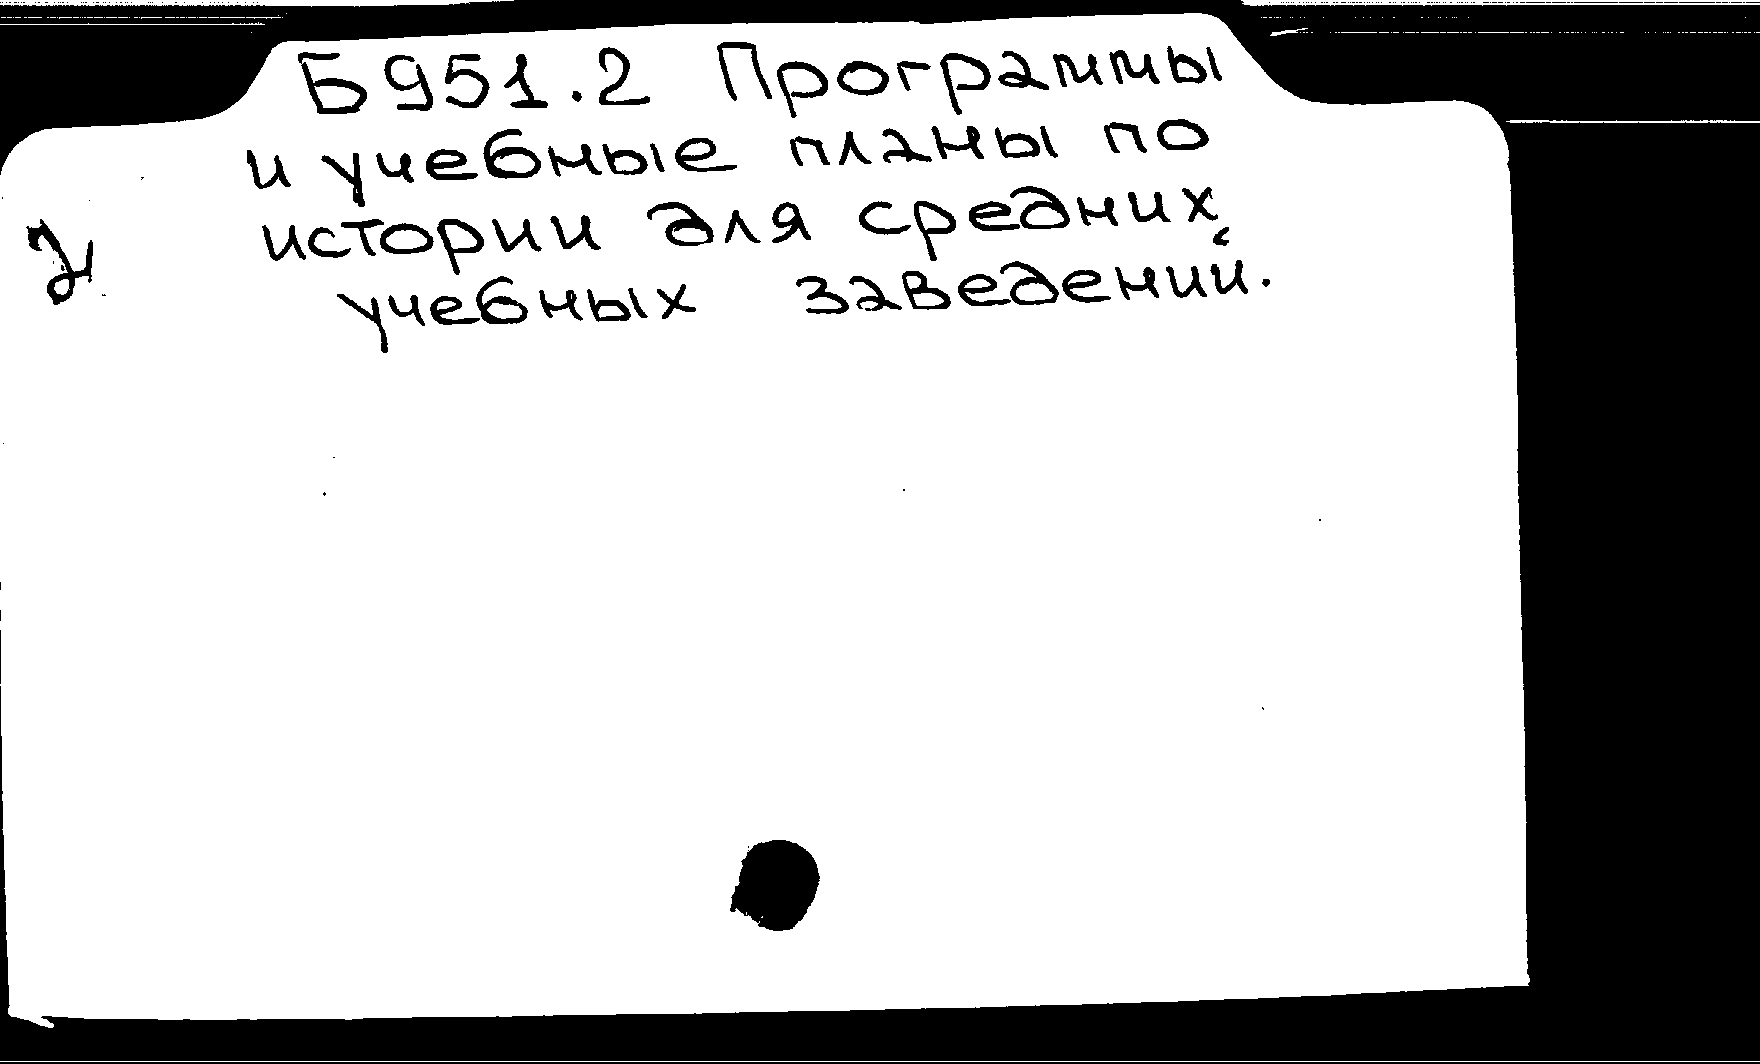 Б951.2 Программы
и учебные планы по
истории для средних
учебных заведений.